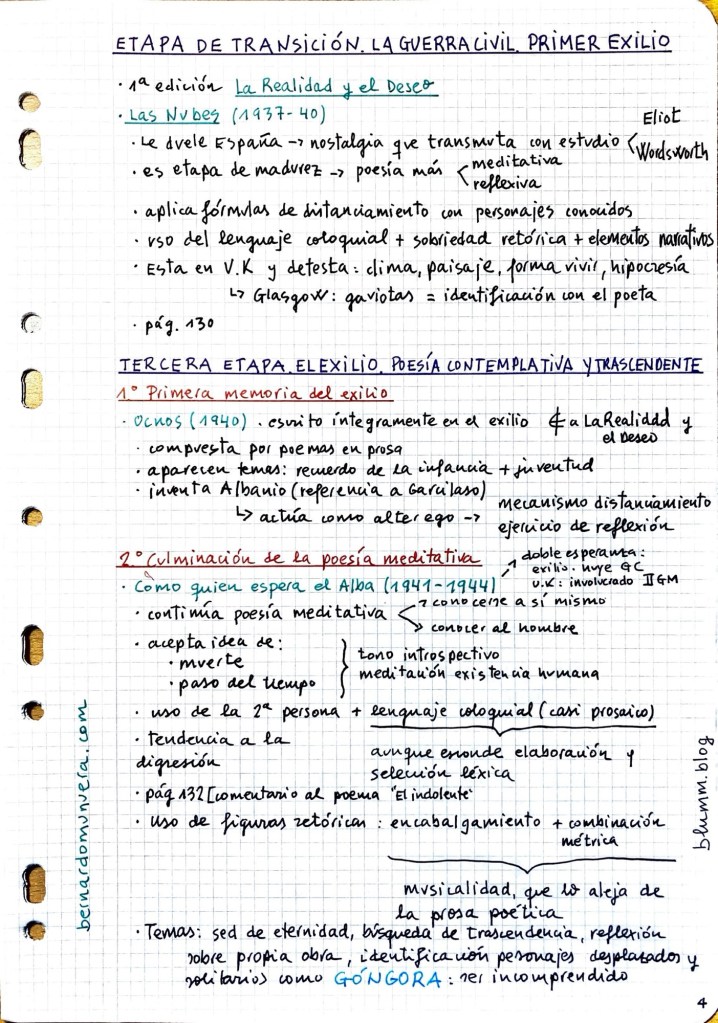 ETAPA DE TRANSICIÓN. LA GUERRA CIVIL. PRIMER EXILIO
· 1ª edición La Realidad y el Deseo
· Las Nubes (1937-40)
· Le duele España → nostalgia que transmuta con estudio < Eliot
Wordsworth
· es etapa de madurez → poesía más < meditativa
reflexiva
· aplica fórmulas de distanciamiento con personajes conocidos
· uso del lenguaje coloquial + sobriedad retórica + elementos narrativos
· Esta en U.K y detesta: clima, paisaje, forma vivir, hipocresía
↳ Glasgow: gaviotas = identificación con el poeta
· pág. 130
TERCERA ETAPA. EL EXILIO. POESÍA CONTEMPLATIVA Y TRASCENDENTE
1º Primera memoria del exilio
· Ocnos (1940) · escrito íntegramente en el exilio ∉ a La Realidad y
el Deseo
· compuesta por poemas en prosa
· aparecen temas: recuerdo de la infancia + juventud
· inventa Albanio (referencia a Garcilaso)
↳ actúa como alter ego → mecanismo distanciamiento
ejercicio de reflexión
2º Culminación de la poesía meditativa
· Como quien espera el Alba (1941-1944) ↗ doble esperanza:
exilio. huye GC
U.K: involucrado II GM
· continúa poesía meditativa < → conocerse a sí mismo
→ conocer al hombre
· acepta idea de:
· muerte
· paso del tiempo
} tono introspectivo
meditación existencia humana
· uso de la 2ª persona + lenguaje coloquial (casi prosaico)
· tendencia a la
digresión
aunque esconde elaboración y
selección léxica
· pág 132 [comentario al poema "El indolente"
· Uso de figuras retóricas: encabalgamiento + combinación
métrica
musicalidad, que lo aleja de
la prosa poética
· Temas: sed de eternidad, búsqueda de trascendencia, reflexión
sobre propia obra, identificación personajes desplazados y
solitarios como GÓNGORA: ser incomprendido
bernardomunuera.com
blumm.blog
4